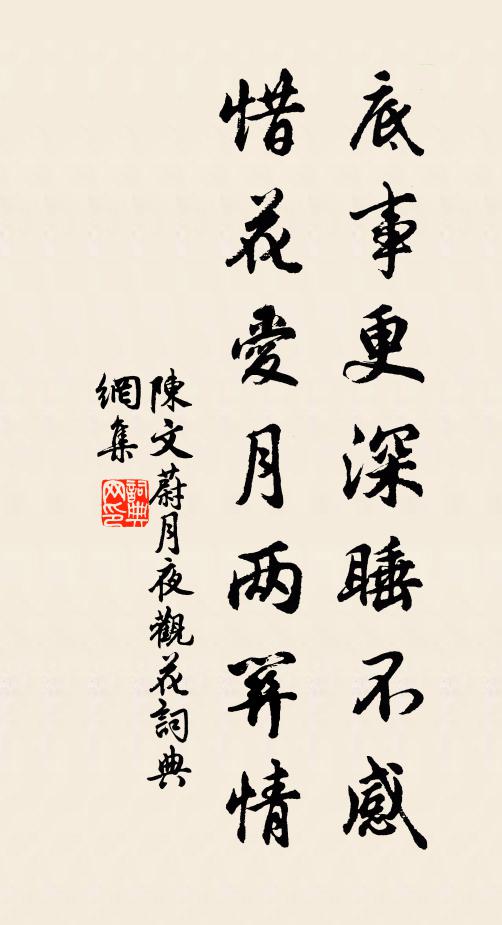 底事更深睡不感
惜花愛月两羿情
陳文蔚月夜觀花詞典
網集
詞典网印